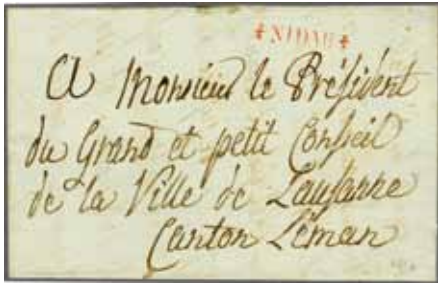 NIDAU
A Monsieur le Président
du Grand et petit Conseil
de la Ville de Lausanne
Canton Léman